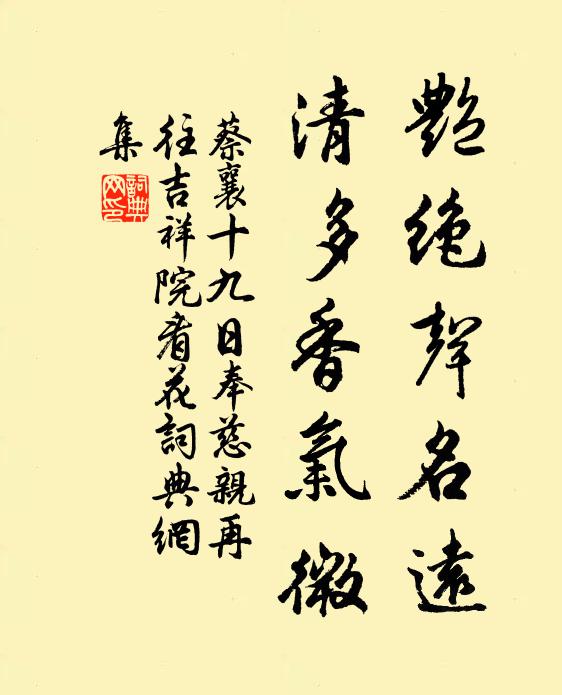 艷絕聲名遠
清多香氣微
蔡襄十九日奉慈親再
往吉祥院看花詞典網
集
詞典网印